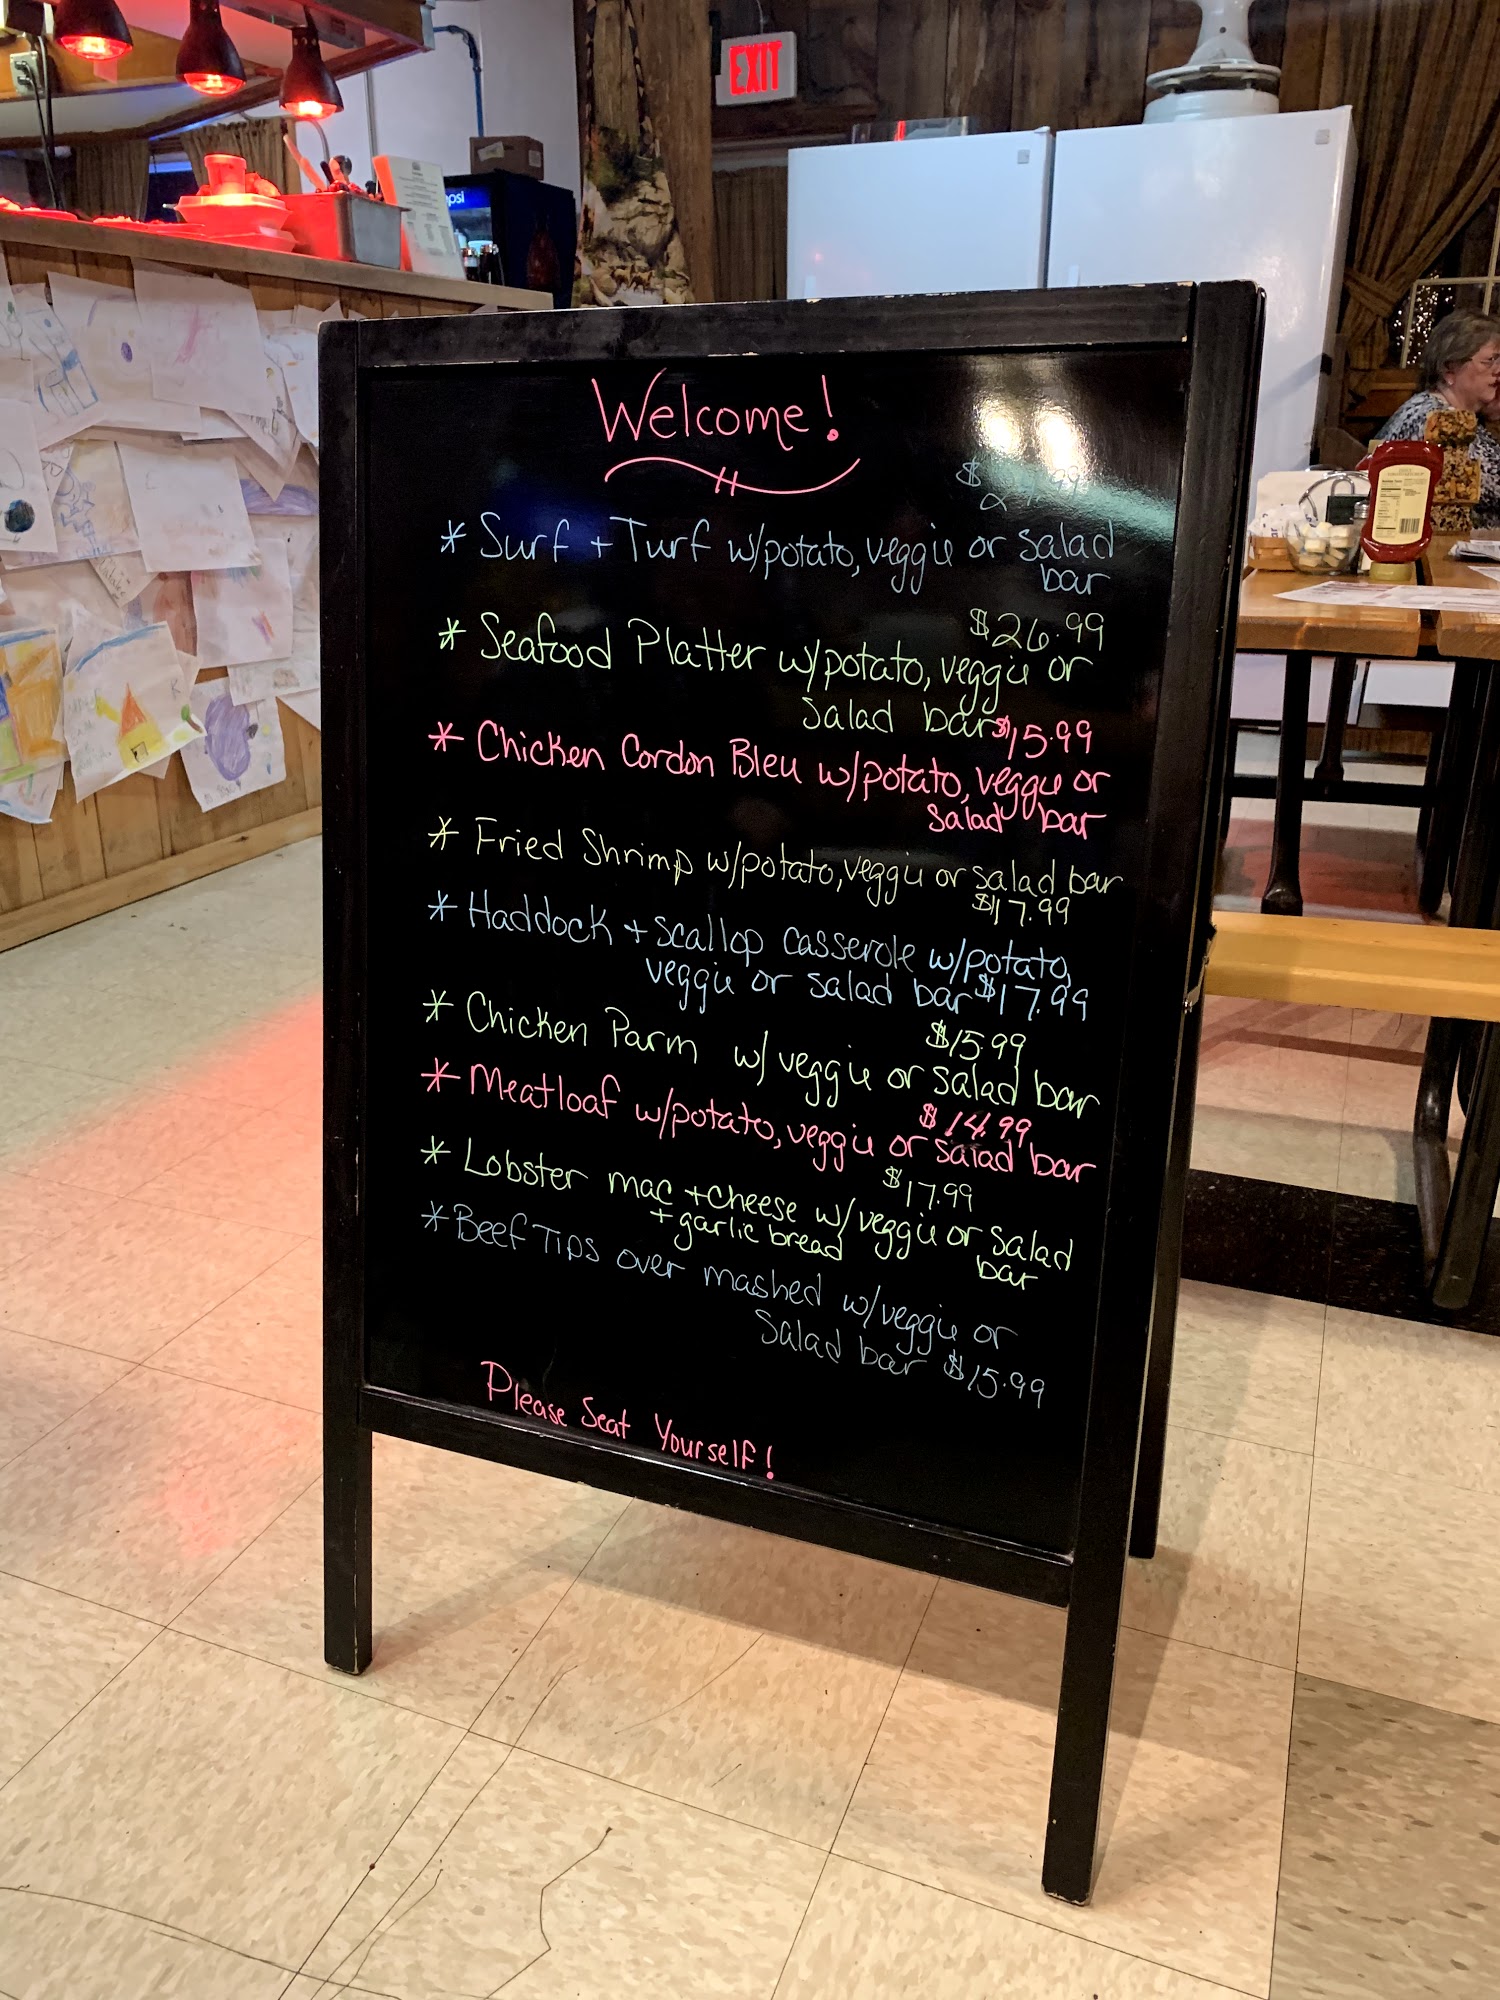 EXIT
psi
Welcome!
* Surf + Turf w/potato, veggie or salad
bar
$26.99
* Seafood Platter w/potato, veggie or
Salad bar $15.99
* Chicken Cordon Bleu w/potato, veggie or
Salad bar
* Fried Shrimp w/potato, veggie or salad bar
$17.99
* Haddock + Scallop casserole w/potato,
veggie or salad bar $17.99
$15.99
* Chicken Parm w/ veggie or salad bar
$14.99
* Meatloaf w/potato, veggie or salad bar
$17.99
* Lobster mac + cheese w/ veggie or Salad
+ garlic bread bar
* Beef Tips over mashed w/veggie or
Salad bar $15.99
Please Seat Yourself!